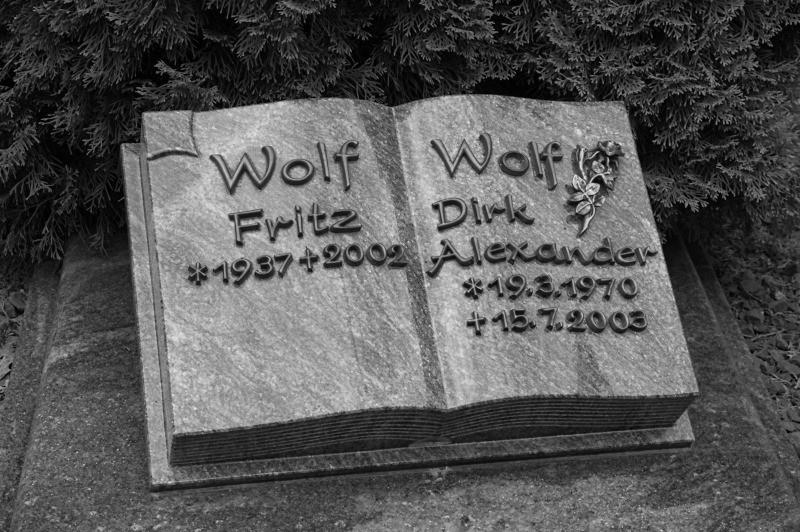 Wolf
Fritz
*1937 †2002
Wolf
Dirk
Alexander
*19.3.1970
†15.7.2003